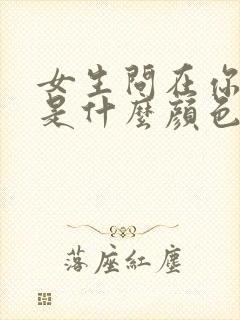 女生問在你
是什麼顏色
落座紅塵